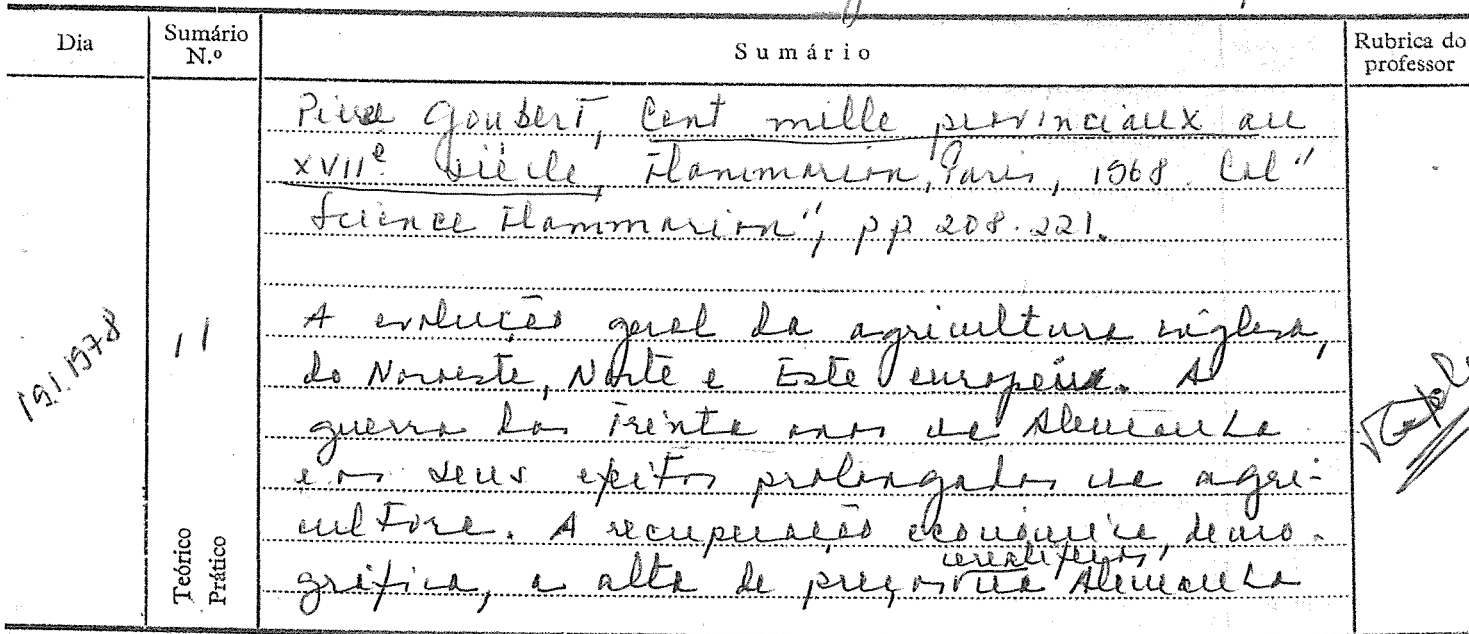 Dia
Sumário
N.º
Sumário
Rubrica do
professor
Pierre Goubert, Cent mille provinciaux au
XVIIe siècle, Flammarion, Paris, 1968. Col "
Science Flammarion", pp 208-221.
19.1.1978
11
A evolução geral da agricultura inglesa,
do Noroeste, Norte e Este europeus. A
guerra dos Trinta anos na Alemanha
e os seus efeitos prolongados na agri-
cultura. A recuperação económica, demo-
cerealíferos,
gráfica, a alta de preços na Alemanha
Teórico
Prático